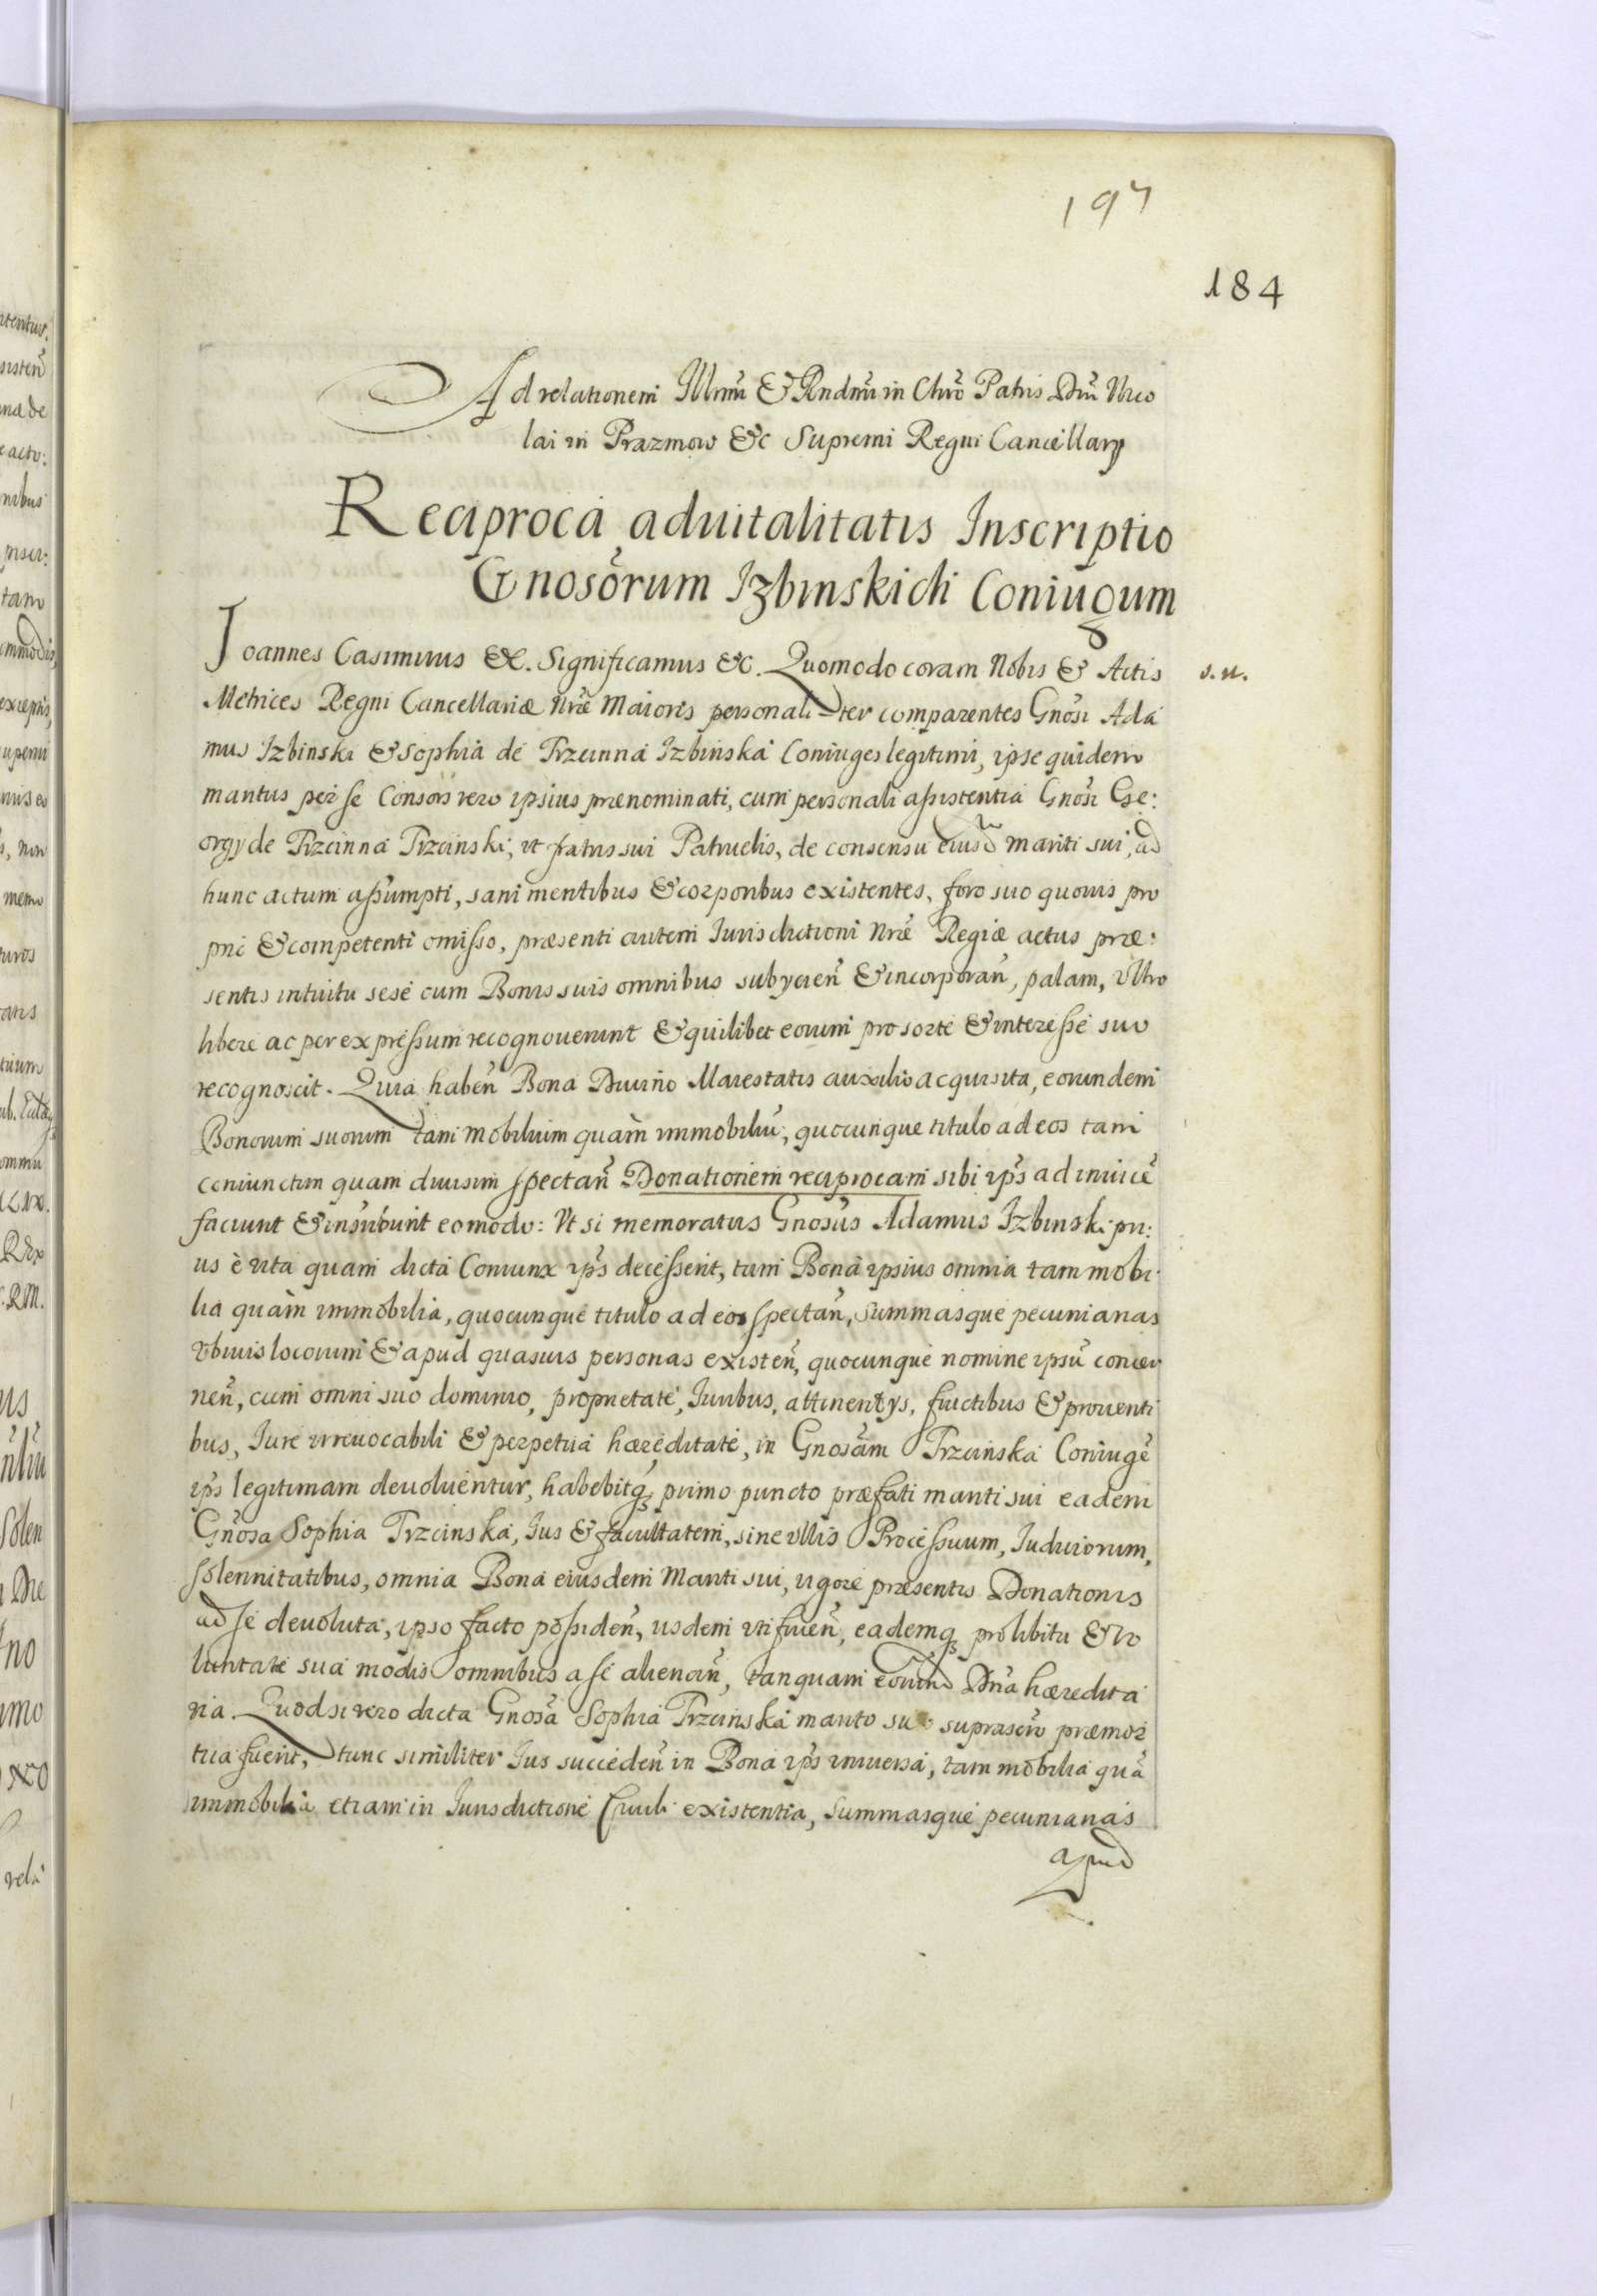 197
184
Ad relationem Illrmi & Rndmi in Chro Patris Dni Nico
lai in Prazmow &c Supremi Regni Cancellarij
Reciproca aduitalitatis Inscriptio
Gnosorum Izbinskich Coniugum
Ioannes Casimirus &c. Significamus &c. Quomodo coram Nobis & Actis
Metrices Regni Cancellariæ Nræ Maioris personaliter comparentes Gnosi Ada
mus Izbinski & Sophia de Trzcinna Izbinska Coniuges legitimi, ipse quidem
maritus per se Consors vero ipsius prænominati, cum personali assistentia Gnosi Ge:
orgy de Trzcinna Trzcinski, vt fratris sui Patruelis, de consensu eiusd mariti sui, ad
hunc actum assumpti, sani mentibus & corporibus existentes, foro suo quovis pro
prio & competenti omisso, præsenti autem Iurisdictioni Nræ Regiæ actus præ:
sentis intuitu sese cum Bonis suis omnibus subycien & incorporan, palam, vltro
libere ac per expressum recognouerunt & quilibet eorum pro sorte & interesse suo
recognoscit. Quia haben Bona Diuino Maiestatis auxilio acquisita, eorundem
Bonorum suorum tam mobilium quàm immobiliu, quocunque titulo ad eos tam
coniunctim quam diuisim spectan Donationem reciprocam sibi ips ad inuice
faciunt & inscribunt eo modo: Vt si memoratus Gnosus Adamus Izbinski pri:
us è vita quam dicta Coniunx ips decesserit, tum Bona ipsius omnia tam mobi
lia quàm immobilia, quocunque titulo ad eos spectan, summasque pecuniarias
vbiuis locorum & apud quasuis personas existen, quocunque nomine ipsu concer
nen, cum omni suo dominio, proprietate, Iuribus, attinentys, fructibus & prouenti
bus, Iure irreuocabili & perpetua hæreditate, in Gnosam Trzcinska Coniuge
ips legitimam deuoluentur, habebitq primo puncto præfati mariti sui eadem
Gnosa Sophia Trzcinska, Ius & facultatem, sine vllis Processuum, Iudiciorum,
solennitatibus, omnia Bona eiusdem Mariti sui, vigore præsentis Donationis
ad se deuoluta, ipso facto possiden, ysdem vti fruen, eademq pro libitu & vo
luntate sua modis omnibus a se alienan, tanquam eorund Dna hæredita
ria. Quod si vero dicta Gnosa Sophia Trzcinska marito suo suprascro præmor
tua fuerit, tunc similiter Ius succeden in Bona ips vniuersa, tam mobilia qua
immobilia etiam in Iurisdictione Ciuili existentia, summasque pecuniarias
apud